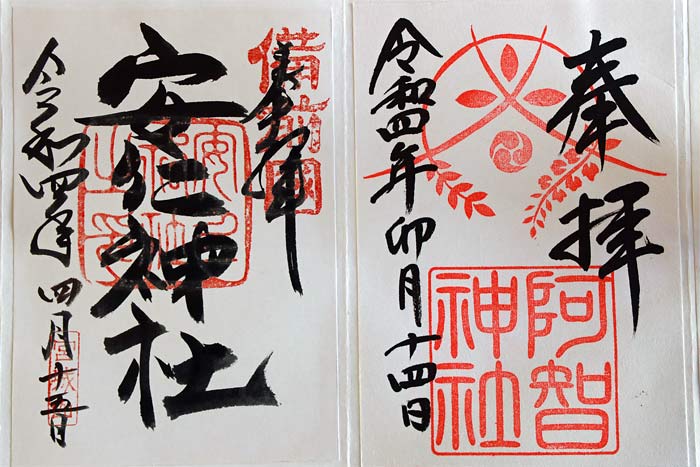 備前國
奉拝
安仁神社
令和四年 四月十五日
奉拝
阿智
神社
令和四年 卯月 十四日